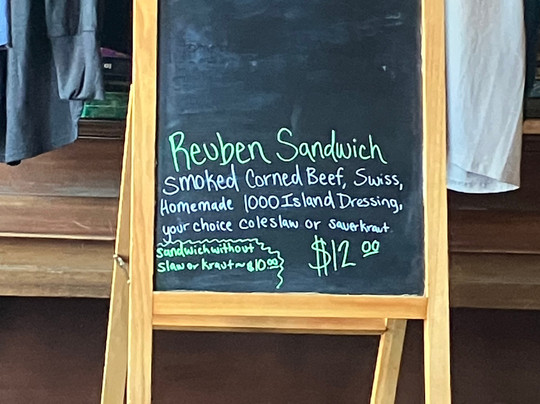 Reuben Sandwich
Smoked Corned Beef, Swiss,
Homemade 1000 Island Dressing,
your choice coleslaw or sauerkraut
$12.00
Sandwich without
Slaw or Kraut ~ $10.00